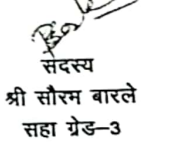 सदस्य
श्री सौरम बारले
सहा ग्रेड–3